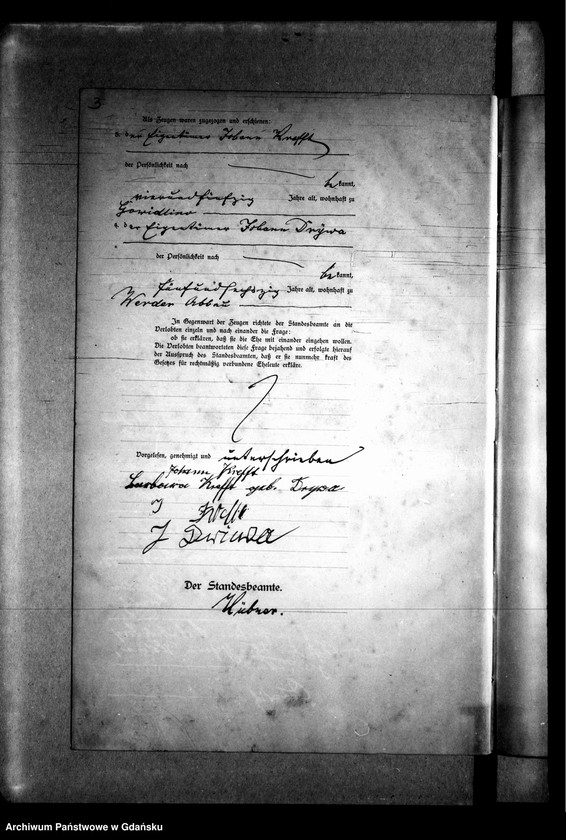 3
Als Zeugen waren zugezogen und erschienen:
der Eigentümer Johann Krefft
der Persönlichkeit nach
bekannt,
vierundfünfzig Jahre alt, wohnhaft zu
Gowidlino
der Eigentümer Johann Drywa
der Persönlichkeit nach
bekannt,
fünfundsechzig Jahre alt, wohnhaft zu
Werder Abbau
In Gegenwart der Zeugen richtete der Standesbeamte an die
Verlobten einzeln und nach einander die Frage:
ob sie erklären, daß sie die Ehe mit einander eingehen wollen.
Die Verlobten beantworteten diese Frage bejahend und erfolgte hierauf
der Ausspruch des Standesbeamten, daß er sie nunmehr kraft des
Gesetzes für rechtmäßig verbundene Eheleute erkläre.
Vorgelesen, genehmigt und unterschrieben
Johann Krefft
Barbara Krefft geb. Drywa
J
J
Der Standesbeamte.
Hübner.
Archiwum Państwowe w Gdańsku